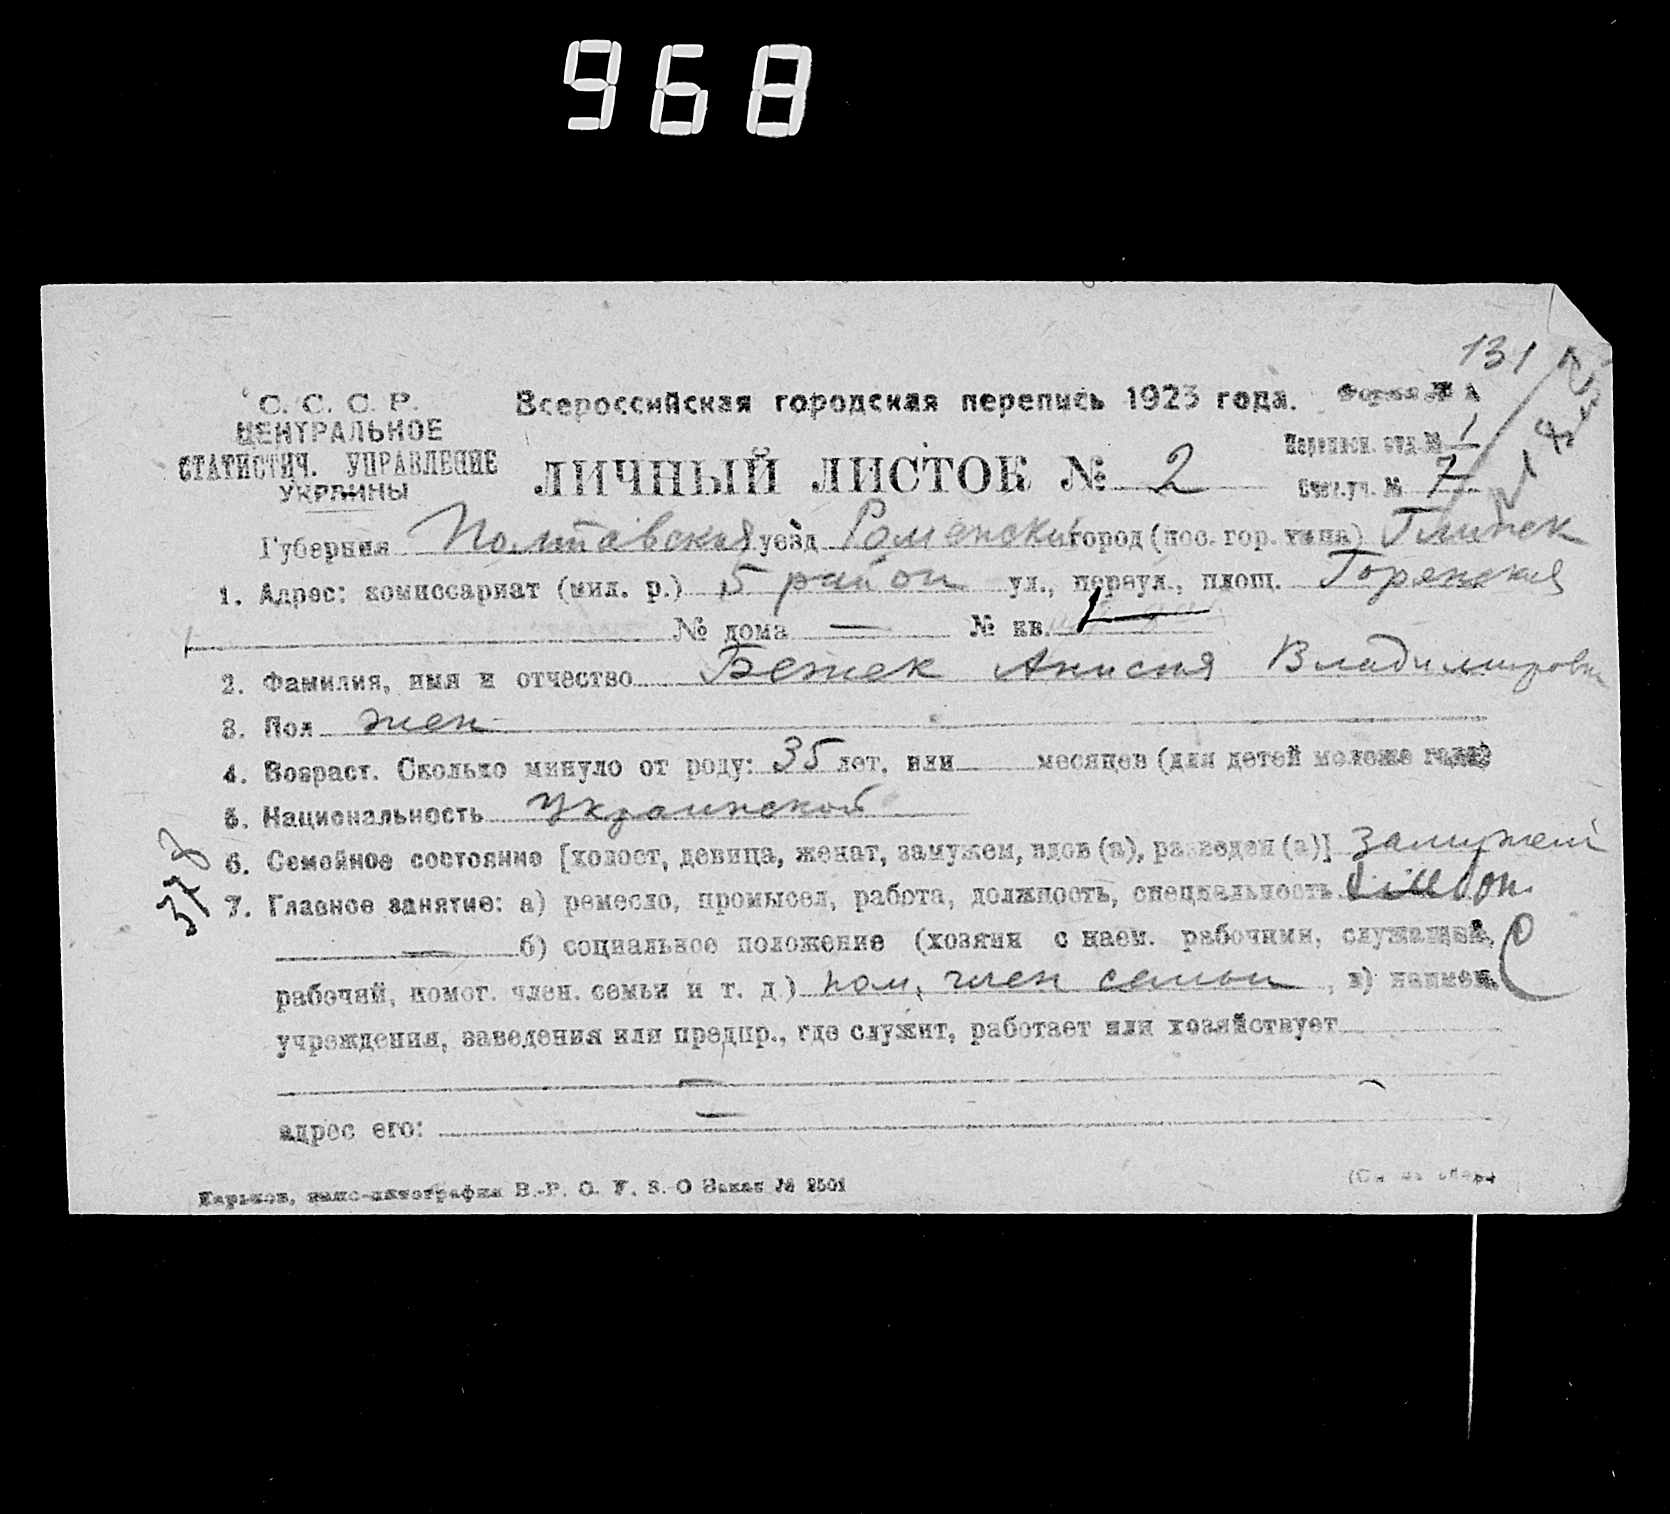 968
131
С. С. С. Р.
ЦЕНТРАЛЬНОЕ
СТАТИСТИЧ. УПРАВЛЕНИЕ
УКРАИНЫ
Всероссийская городская перепись 1923 года.
Форма № А
Переписн. отд. № 1
ЛИЧНЫЙ ЛИСТОК № 2
Счетн. уч. № 7
Губерния Полтавская уезд Роменский город (пос. гор. типа) Глинск
1. Адрес: комиссариат (мил. р.) 5 район ул., переул., площ.
№ дома — № кв.
2. Фамилия, имя и отчество Бежек Анисия Владимировн
3. Пол жен
4. Возраст. Сколько минуло от роду: 35 лет, или месяцев (для детей моложе года)
5. Национальность Украинской
6. Семейное состояние [холост, девица, женат, замужем, вдов (а), разведен (а)] замужем
7. Главное занятие: а) ремесло, промысел, работа, должность, специальность
— б) социальное положение (хозяин с наем. рабочими, служащий,
рабочий, помог. член. семьи и т. д.) пом. член семьи, в) наимен.
учреждения, заведения или предпр., где служит, работает или хозяйствует
—
адрес его: —
Харьков, Заказ № 2501